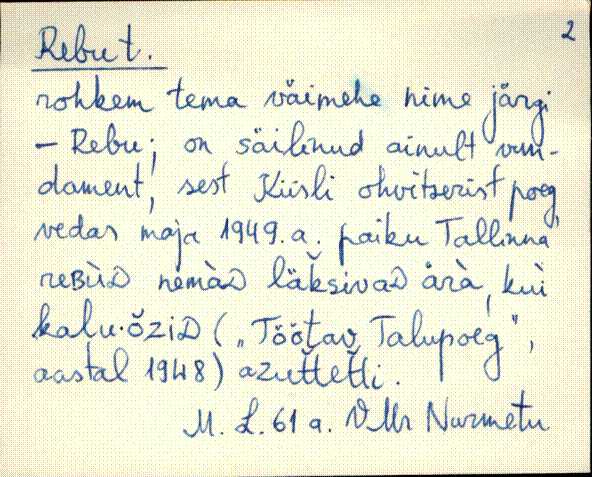 Rebu t.
2
rohkem tema väimehe nime järgi
– Rebu; on säilinud ainult vun-
dament, sest Kiisli ohvitserist poeg
vedas maja 1949. a. paiku Tallinna
reʙùᴅ nèmàᴅ läk̆sivaᴅ ärà, kùi
kalu·ɷ̆ziᴅ („Töötav Talupoeg",
aastal 1948) azut̆tet̆ti.
M. L. 61 a. VMr Nurmetu